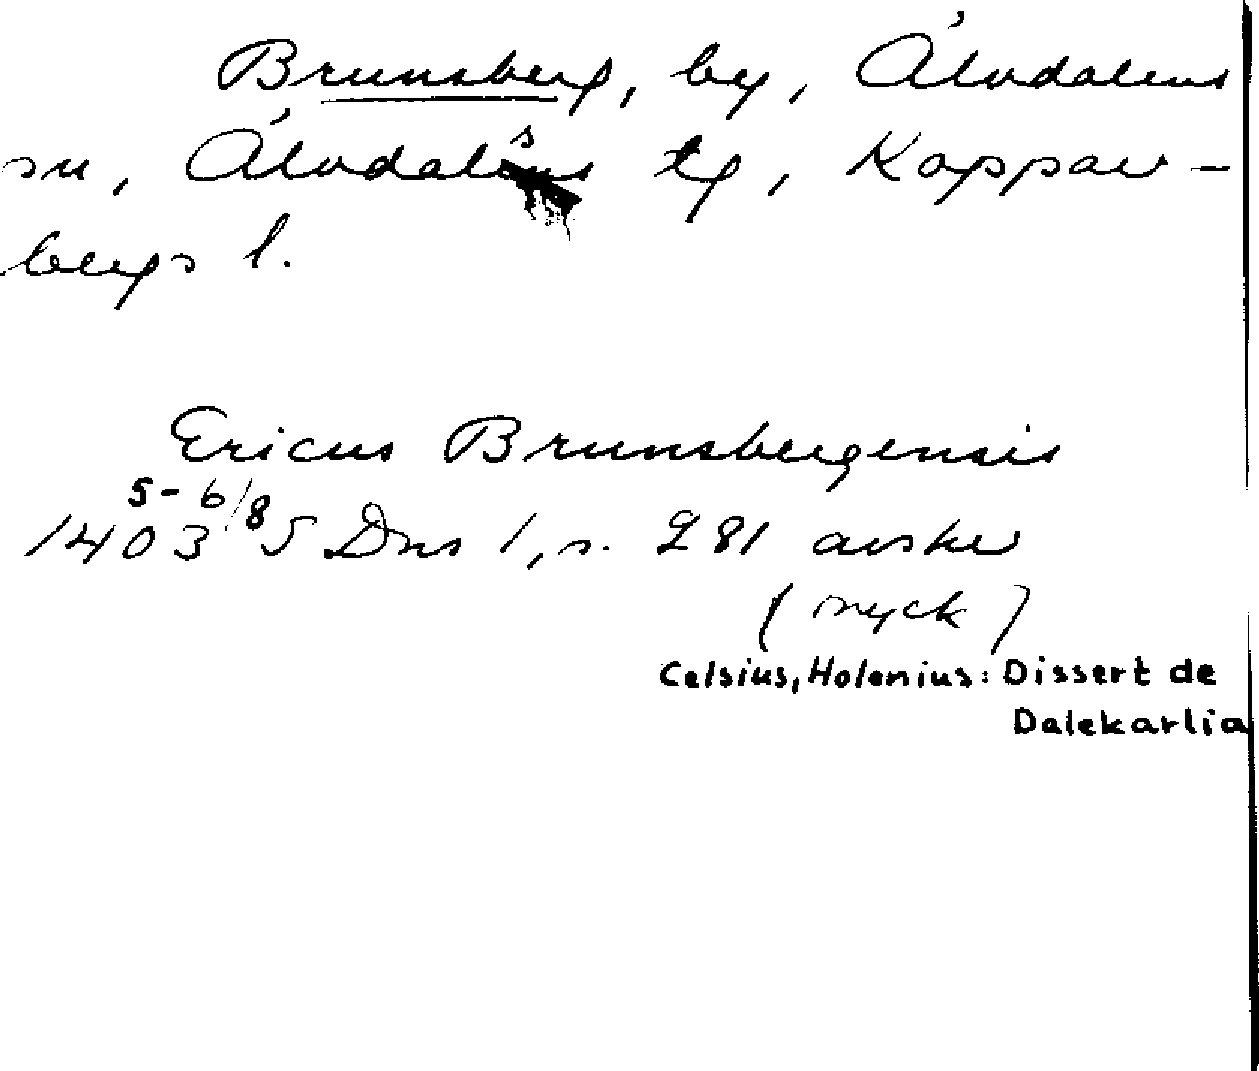 Brunsberg, by, Älvdalens
sn, Älvdals tg, Koppar-
bergs l.
Ericus Brunsbergensis
1403 5-6/8 S Dns 1, s. 281 avskr
(tryck)
Celsius, Holenius: Dissert de
Dalekarlia